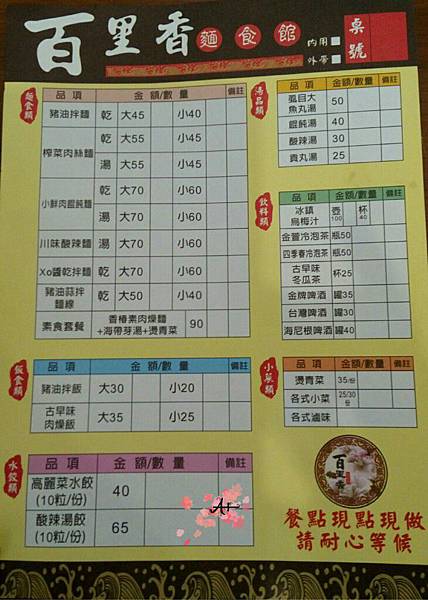 百里香 麵食館
內用
外帶
桌號
麵食類
品項 金額/數量 備註
豬油拌麵 乾 大45 小40
榨菜肉絲麵 乾 大55 小45
湯 大55 小45
小鮮肉餛飩麵 乾 大70 小60
湯 大70 小60
川味酸辣麵 湯 大70 小60
Xo醬乾拌麵 乾 大70 小60
豬油蒜拌麵線 乾 大50 小40
素食套餐 香椿素肉燥麵
+海帶芽湯+燙青菜 90
飯食類
品項 金額/數量 備註
豬油拌飯 大30 小20
古早味
肉燥飯 大35 小25
水餃類
品項 金額/數量 備註
高麗菜水餃
(10粒/份) 40
酸辣湯餃
(10粒/份) 65
湯品類
品項 金額/數量 備註
虱目大
魚丸湯 50
餛飩湯 40
酸辣湯 30
貢丸湯 25
飲料類
品項 金額/數量 備註
冰鎮
烏梅汁 壺100 杯40
金萱冷泡茶 瓶50
四季春冷泡茶 瓶50
古早味
冬瓜茶 杯25
金牌啤酒 罐35
台灣啤酒 罐30
海尼根啤酒 罐40
小菜類
品項 金額/數量 備註
燙青菜 35/份
各式小菜 25/30份
各式滷味
百里香
餐點現點現做
請耐心等候